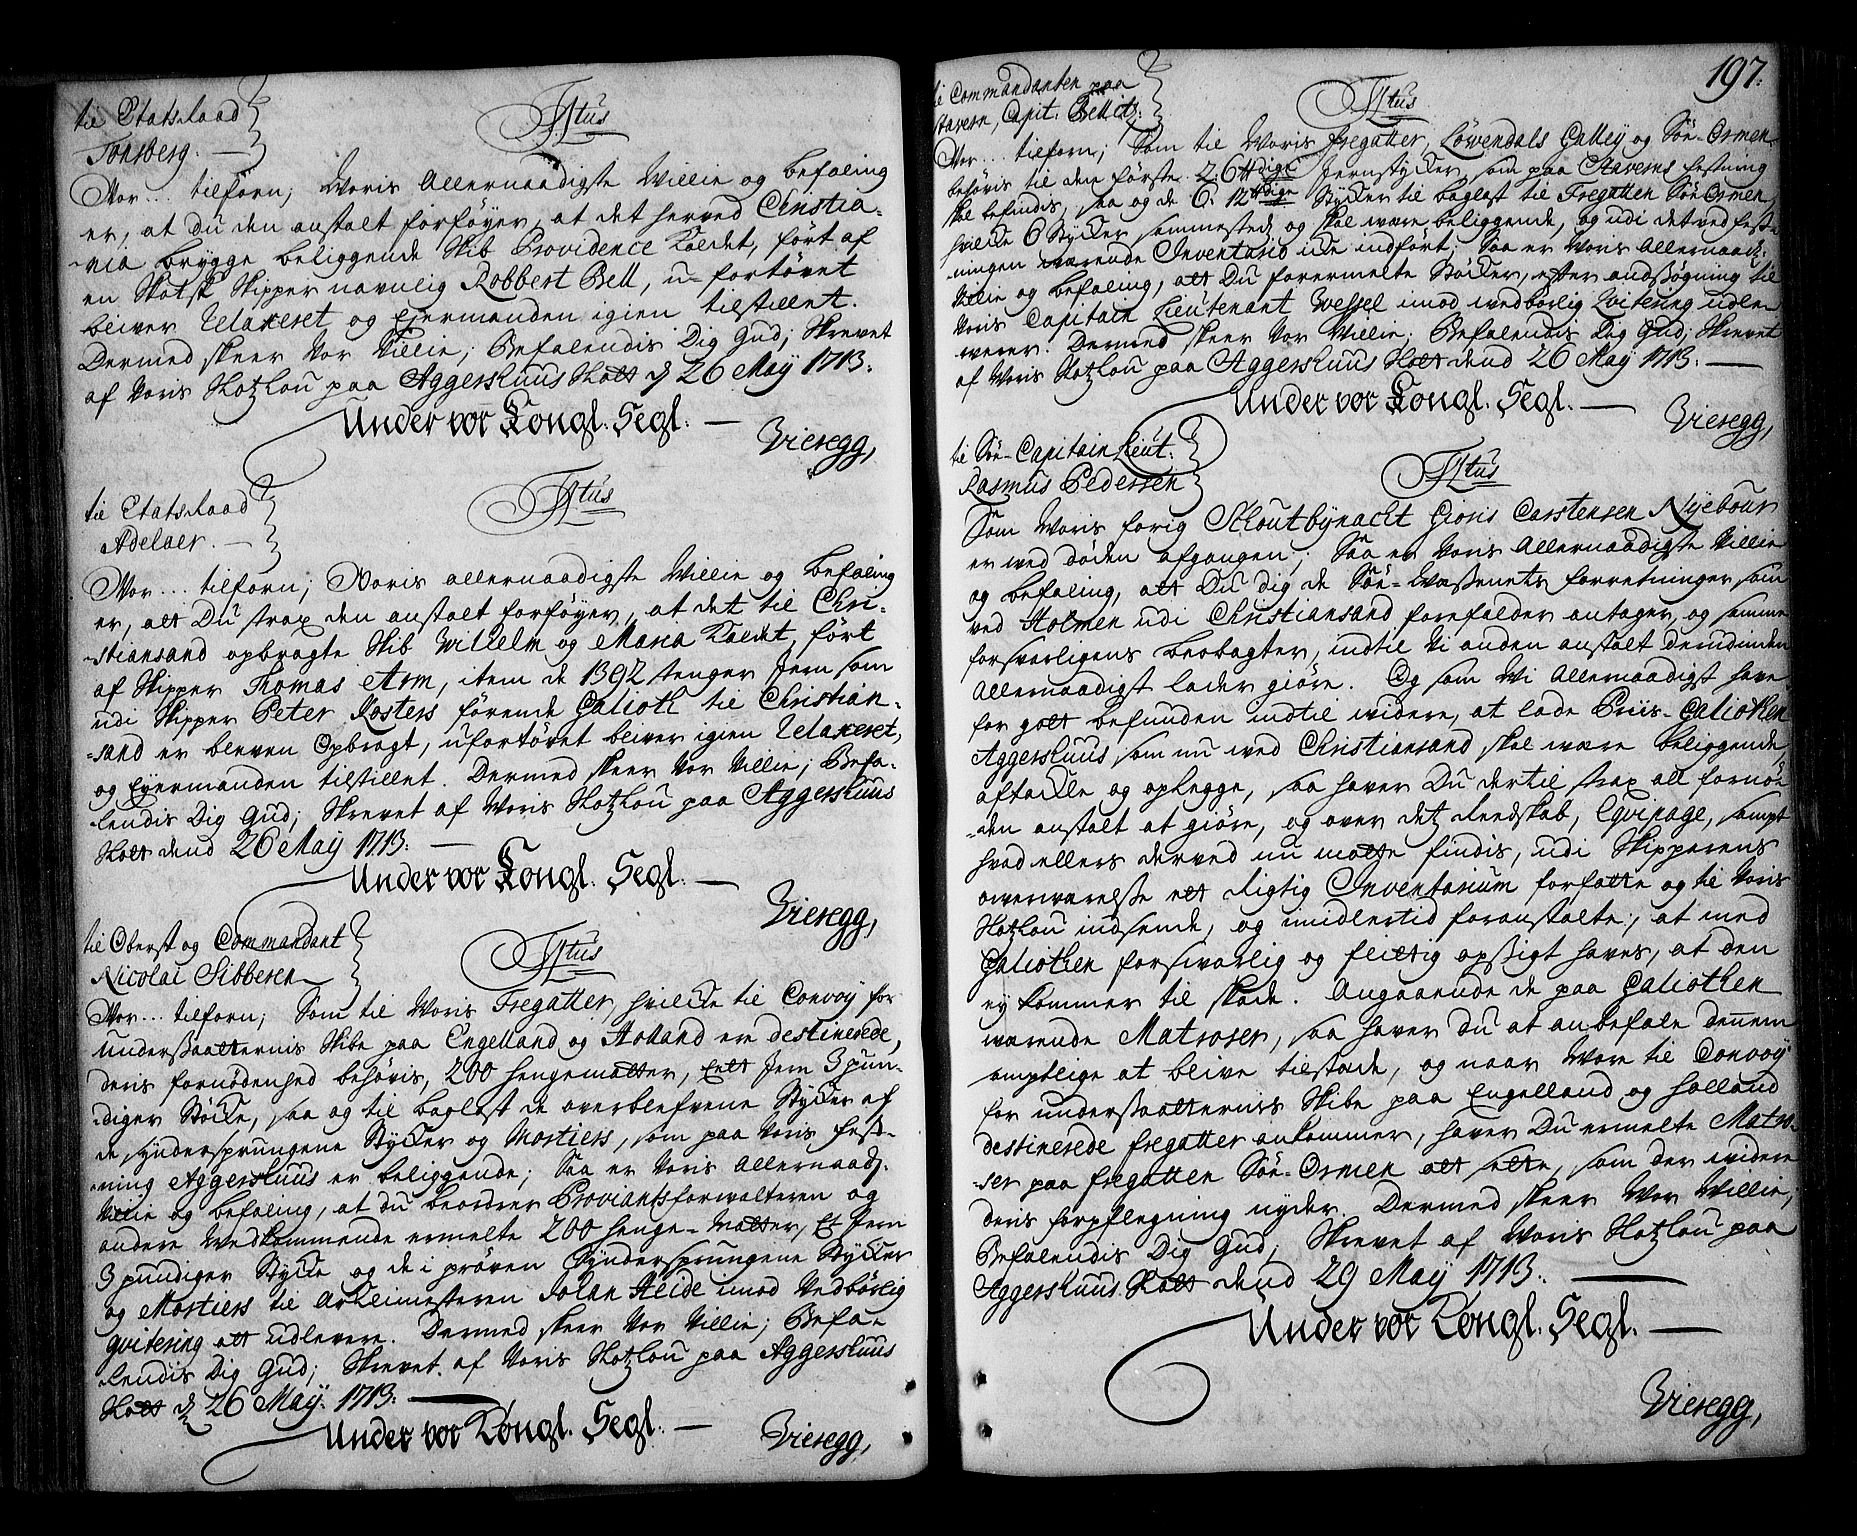 til Etatsraad
Tonsberg.
Ftus
Vor... tilforn; Voris Allernaadigste Villie og befaling
er, at du den anstalt forføyer, at det herved Christia-
-nia brygge beliggende Skib Providence Kaldet, ført af
en Skotsk Skipper navnlig Robbert Bell, u-fortøvet
bliver relaxeret og Ejermanden igien tilstillet.
Dermed skeer Vor Villie; Befalendis Dig Gud; Skrevet
af Voris Slotzlou paa Aggershuus Slott d 26 May 1713.
Under vor Kongl. Segl.
Vieregg,
til Etatsraad
Adelaer.
Ftus
Vor... tilforn; Voris allernaadigste Villie og befaling
er, att Du strax den anstalt forføyer, at det til Chri-
-stiansand opbragte Skib Wilhelm og Maria Kaldet, ført
af Skipper Thomas Arm, item de 1392 stenger Jern som
udi Skipper Peter Rosters førende Galioth til Christian-
-sand er bleven Opbragt, ufortøvet bliver igien relaxeret,
og Eyermanden tilstillet. Dermed skeer Vor Villie; Befa-
-lendis Dig Gud; Skrevet af Voris Slotzlou paa Aggershuus
Slott dend 26 May 1713.
Under vor Kongl. Segl.
Vieregg,
til Oberst og Commandant
Nicolai Sibbersen
Ftus
Vor... tilforn; Som til Voris Fregatter, hvilcke til Convoy for
undersaatternis Skibe paa Engelland og Holland ere destinerede,
deris fornødenhed behøvis, 200 hengematter, Ett Jern 3 pun-
-diger Støcke, saa og til baglast de overblefvene Stycker af
de syndersprungene Stycker og Mortiers, som paa Voris Fest-
-ning Aggershuus er beliggende; Saa er Voris Allernaads:
Villie og befaling, at du beordrer Proviantsforvalteren og
andere Vedkommende ermelte 200 henge-Matter, Et Jern
3 pundiger Stycke og de i prøven syndersprungene Stycker
og Mortiers til Arkeimesteren Johan Heide imod Vedbørlig
qvitering att udlevere. Dermed skeer Vor Villie; Befa-
-lendis Dig Gud; Skrevet af Voris Slotzlou paa Aggershuus
Slott d 26 May 1713.
Under vor Kongl. Segl.
Vieregg,
197.
til Commandanten paa
Stavern, Capit: Bellitz.
Ftus
Vor... tilforn; Som til Voris Fregatter, Løwendals Galley og Søe-Ormen
behøvis til den første 2: 6 ℔dige Jernstycker, som paa Staverns festning
skal befindis, saa og de 6: 12 ℔dige Stycker til baglast til Fregatten Søe-Ormen,
hvilcke 6 Stycker sammesteds og skal være beliggende, og udi det ved fest-
-ningen værende Inventario icke indført; Saa er Voris Allernaads:
Villie og befaling, att Du forermelte Støcker, efter andsøgning til
Voris Capitain Lieutenant Wessel imod vedbørlig Qvitering udle-
-verer. Dermed skeer Vor Villie; Befalendis Dig Gud; Skrevet
af Voris Slotzlou paa Aggershuus Slott dend 26 May 1713.
Under vor Kongl. Segl.
Vieregg,
til Søe-Capitain Lieut:
Rasmus Pedersen
Ftus
Som Voris forig Skoutbynacht Gioris Carstensen Nyebour
er ved døden afgangen; Saa er Voris Allernaadigste Villie
og befaling, att Du dig de Søe-Væsenets forretninger som
ved Holmen udi Christiansand forefalder antager, og samme
forsvarligens beobagter, indtil Vi anden anstalt derudinden
Allernaadigst lader giøre. Og som Vi Allernaadigst have
for gott befunden indtil videre, at lade Priis-Galiothen
Aggershuus, som nu ved Christiansand skal være beliggende,
aftackle og oplegge, saa haver Du dertil strax all fornø-
-den anstalt at giøre, og over detz Reedskab, Eqvipage, sampt
hvad ellers derved nu maatte findis, udi Skipperens
overværelse ett Rigtig Inventarium forfatte og til Voris
Slotzlou indsende, og imidlertid foranstalte, at med
Galiothen forsvarlig og flittig opsigt haves, at den
ey kommer til skade. Angaaende de paa Galiothen
værende Matroser, saa haver Du at anbefale dennem
samptlige at blive tilstede, og naar Vore til Convoy
for undersaatternis Skibe paa Engelland og Holland
destinerede Fregatter ankommer, haver Du ermelte Matro-
-ser paa Fregatten Søe-Ormen att sette, som der videre
deris forpflegning nyder. Dermed skeer Vor Villie;
Befalendis Dig Gud; Skrevet af Voris Slotzlou paa
Aggershuus Slott dend 29 May 1713.
Under vor Kongl. Segl.
Vieregg,